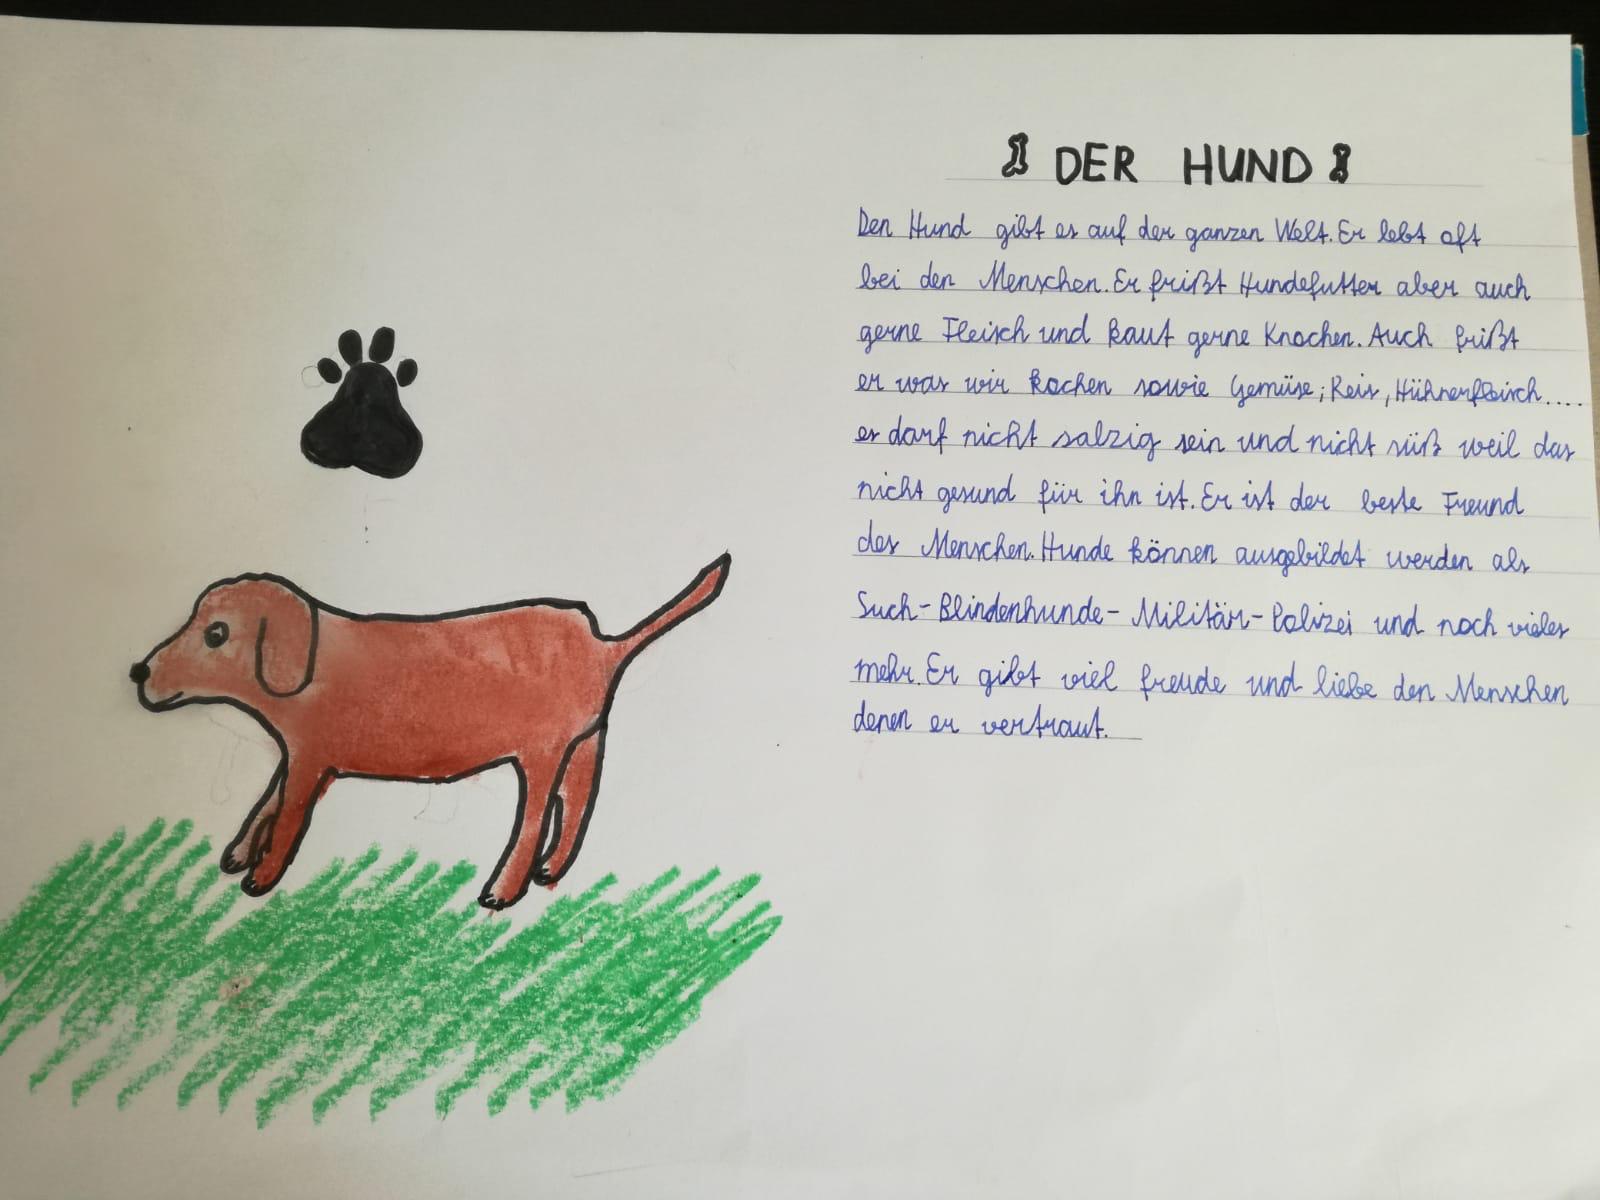 DER HUND
Den Hund gibt es auf der ganzen Welt. Er lebt oft
bei den Menschen. Er frißt Hundefutter aber auch
gerne Fleisch und kaut gerne Knochen. Auch frißt
er was wir kochen sowie Gemüse; Reis, Hühnerfleisch....
es darf nicht salzig sein und nicht süß weil das
nicht gesund für ihn ist. Er ist der beste Freund
des Menschen. Hunde können ausgebildet werden als
Such-Blindenhunde-Militär-Polizei und noch vieles
mehr. Er gibt viel freude und liebe den Menschen
denen er vertraut.